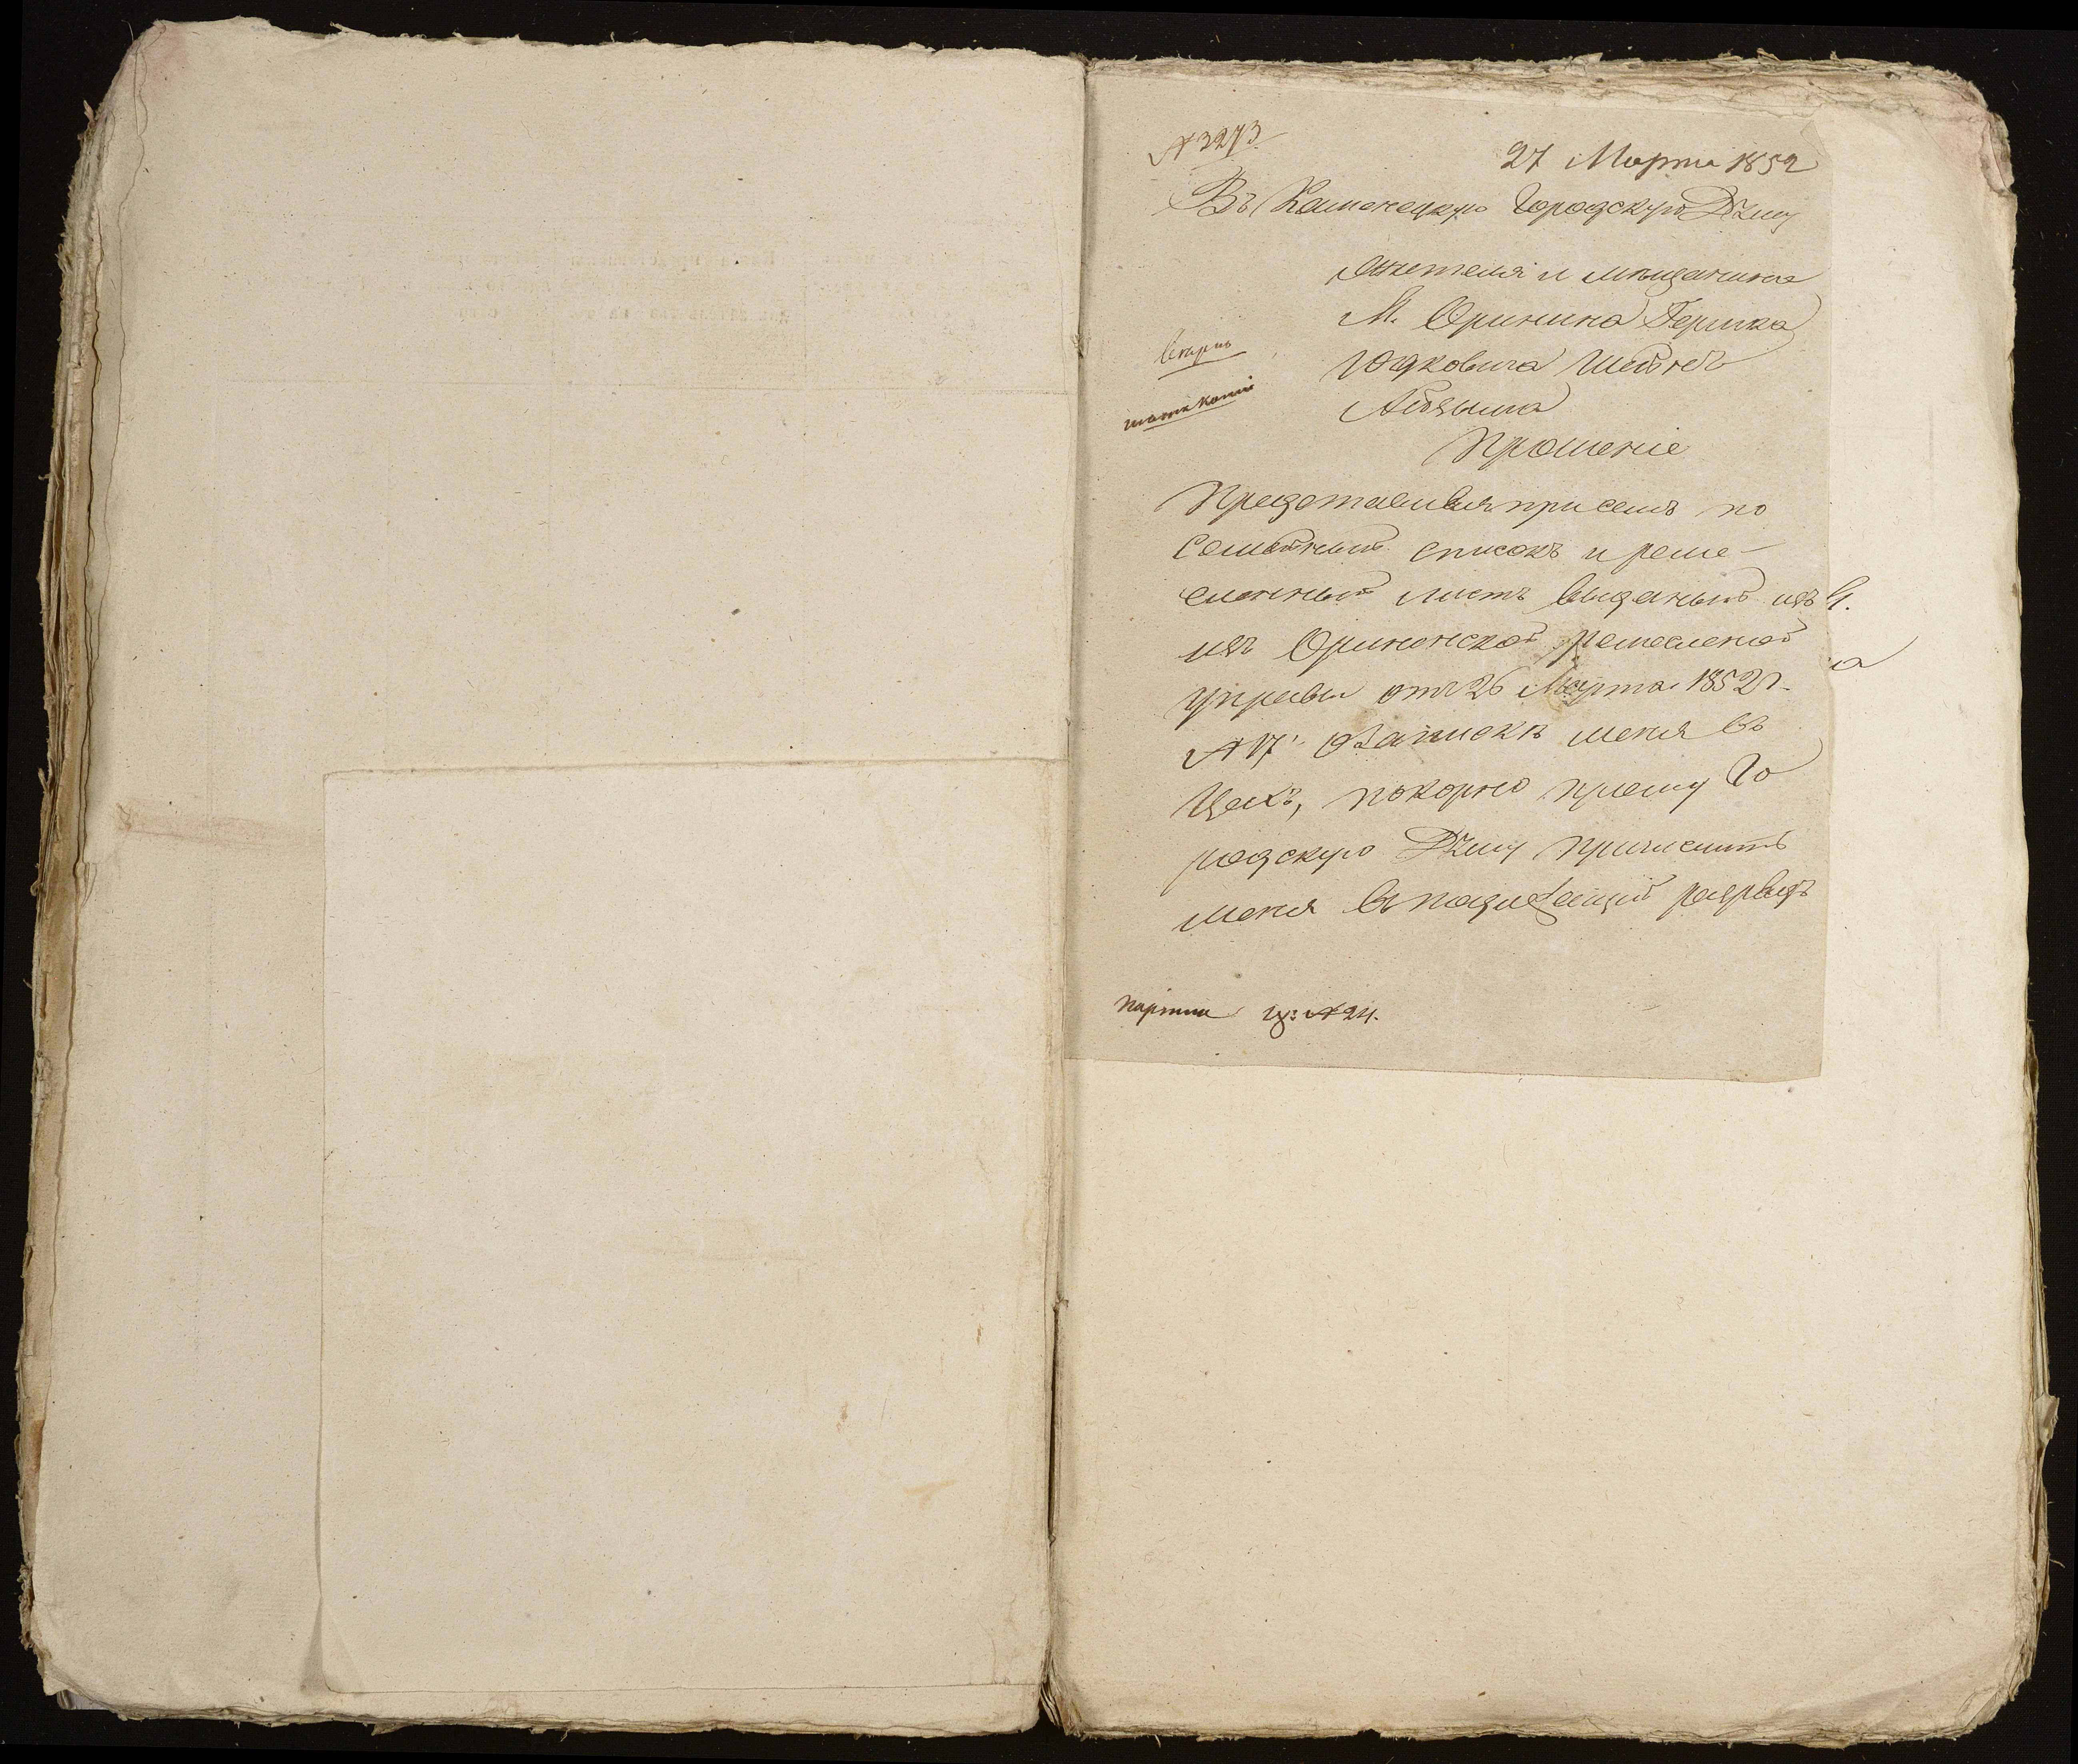 № 3273
27 Марта 1852
Въ Каменецкую Городскую Думу
жителя и мещанина
М. Оринина Гершка
Юдковича
Прошеніе
Представляя при семъ по
семейный списокъ и реме-
сленный листъ выданый изъ
изъ Орининской ремесленой
управы отъ 26 Марта 1852 г.
№ 17 о записке меня въ
Цехъ, покорно прошу Го
родскую Думу причислить
меня въ подлежащій разрядъ
Партии № 24.